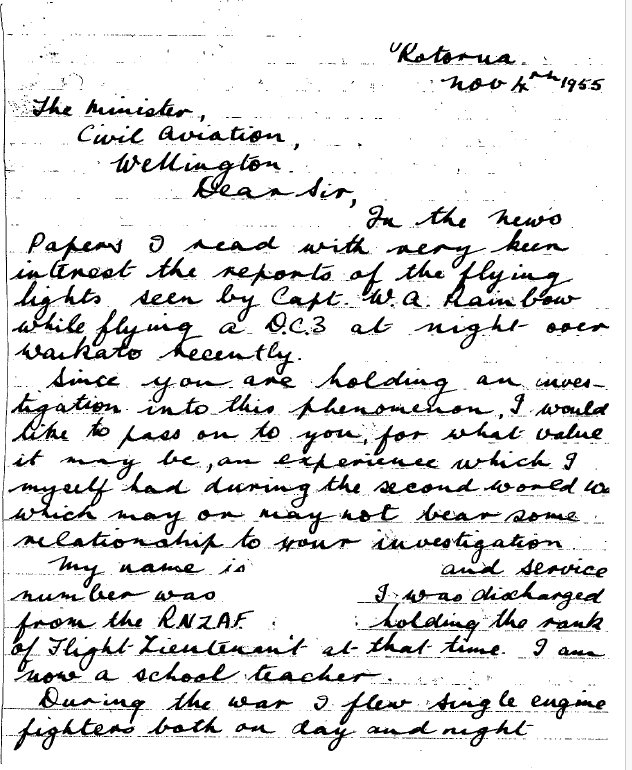 Rotorua.
Nov 4th 1955
The Minister,
Civil Aviation,
Wellington.
Dear Sir,
In the news
Papers I read with very keen
interest the reports of the flying
lights seen by Capt. W.A. Rainbow
while flying a D.C.3 at night over
Waikato recently.
Since you are holding an inves-
tigation into this phenomenon, I would
like to pass on to you, for what value
it may be, an experience which I
myself had during the second world
which may or may not bear some
relationship to your investigation
My name is and service
number was I was discharged
from the RNZAF holding the rank
of Flight Lieutenant at that time. I am
now a school teacher.
During the war I flew single engine
fighters both on day and night